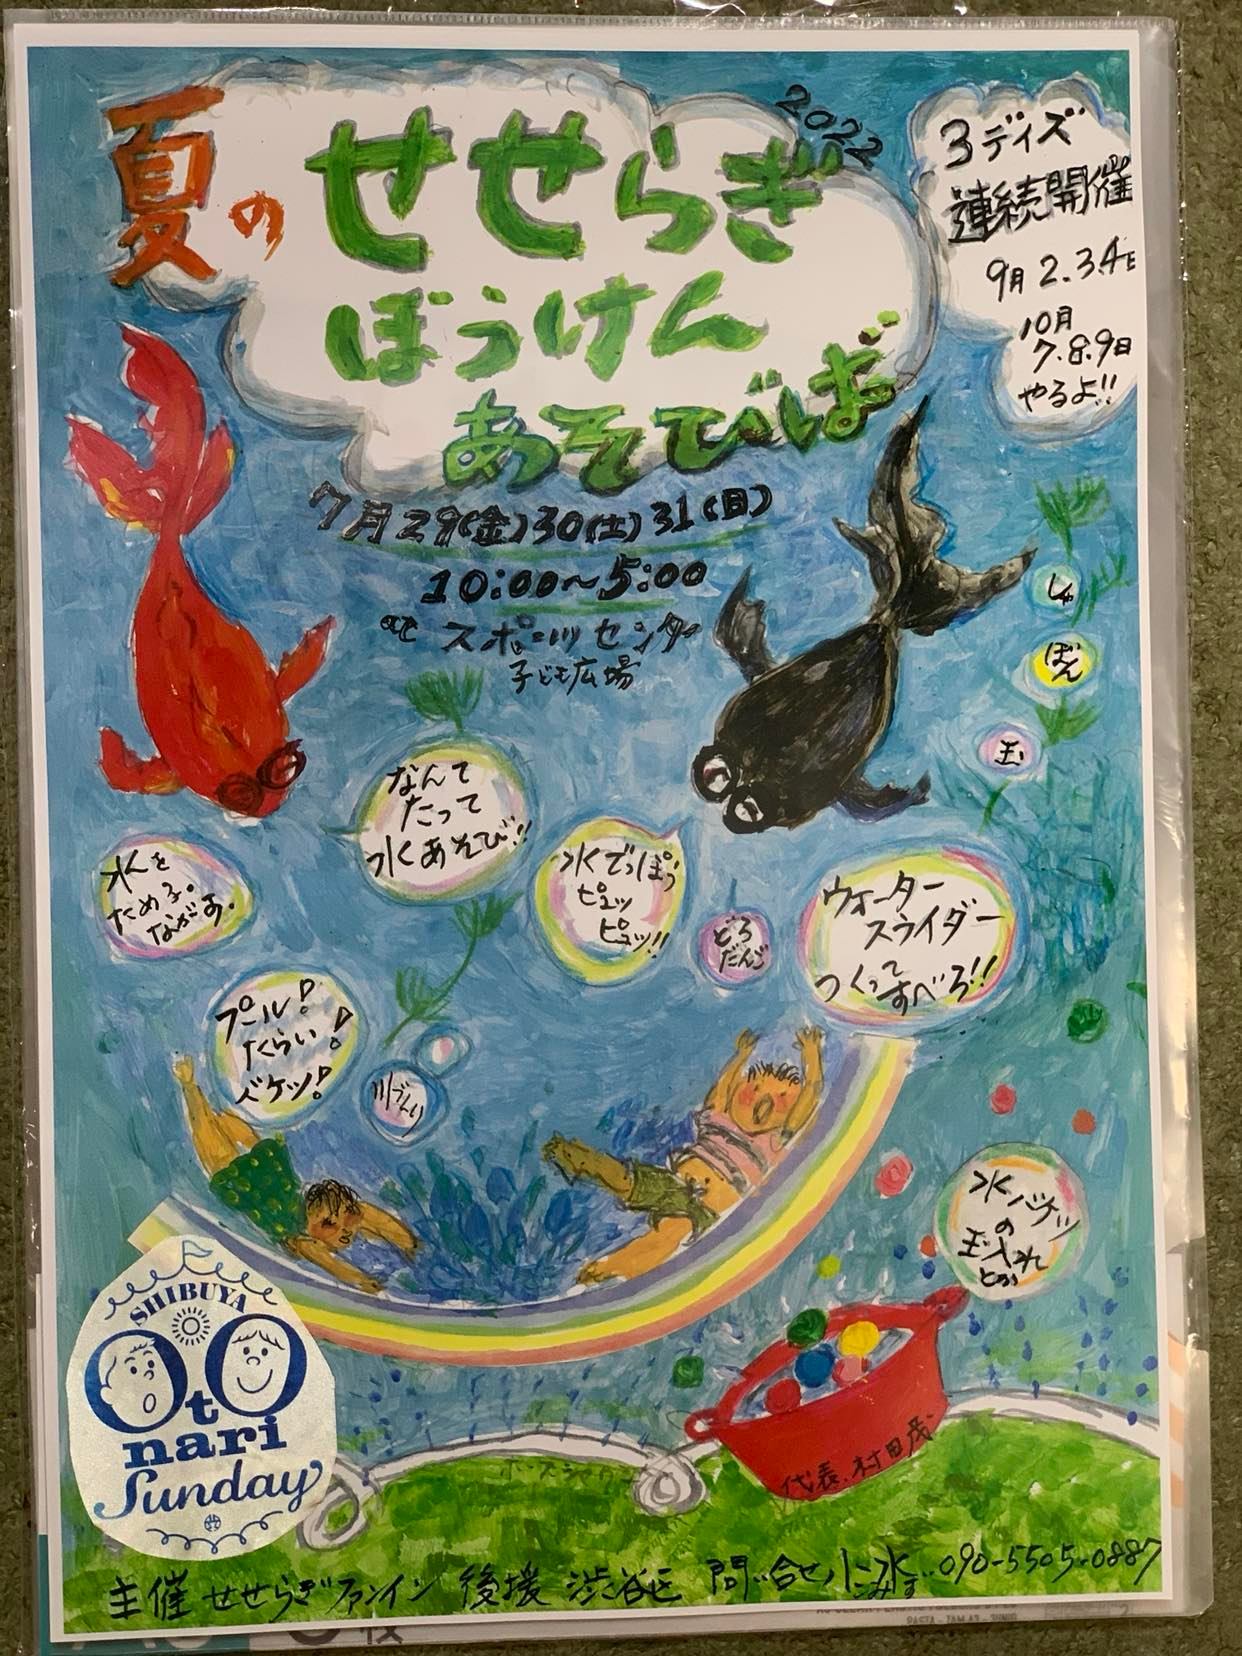 2022
夏の
せせらぎ
ぼうけん
あそびば
3ディズ
連続開催
9月2.3.4日
10月
7.8.9日
やるよ!!
7月29(金)30(土)31(日)
10:00〜5:00
at スポーツセンター
子ども広場
しゃ
ぼん
玉
なんて
たって
水あそび!!
水でっぽう
ピュッ
ピュッ!!
水を
ためる。
ながす。
どろ
だんご
ウォーター
スライダー
つくって
すべろ!!
プール!
たらい!
バケツ!
水バケツ
の
玉入れ
とか
SHIBUYA
OtOnari
Sunday
ホースシャワー
代表.村田茂
主催 せせらぎファンイン 後援 渋谷区 問い合せ 小水 090-5505-0887
こみず